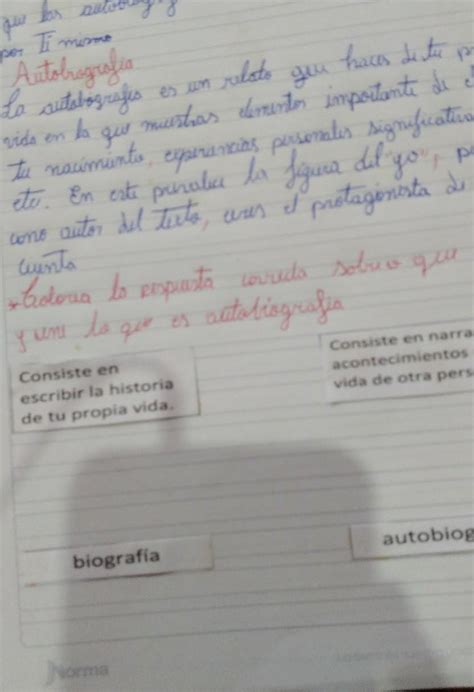 que las
por Ti mismo
Autobiografía
La autobiografía es un relato que haces de tu
vida en la que muestras elementos importante de
tu nacimiento, esperiencias personales significativa
etc. En este prevalece la figura del "yo",
como autor del texto, eres el protagonista de
cuenta
*Colorea la respuesta correcta sobre
y une la que es autobiografía
Consiste en
escribir la historia
de tu propia vida.
Consiste en narra
acontecimientos
vida de otra pers
biografía
autobiog
Norma